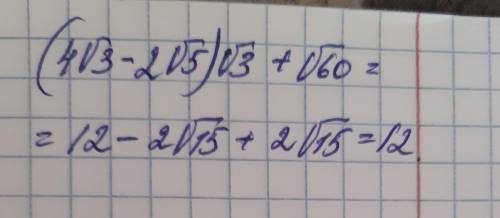 (4√3 - 2√5)√3 + √60 =
= 12 - 2√15 + 2√15 = 12.